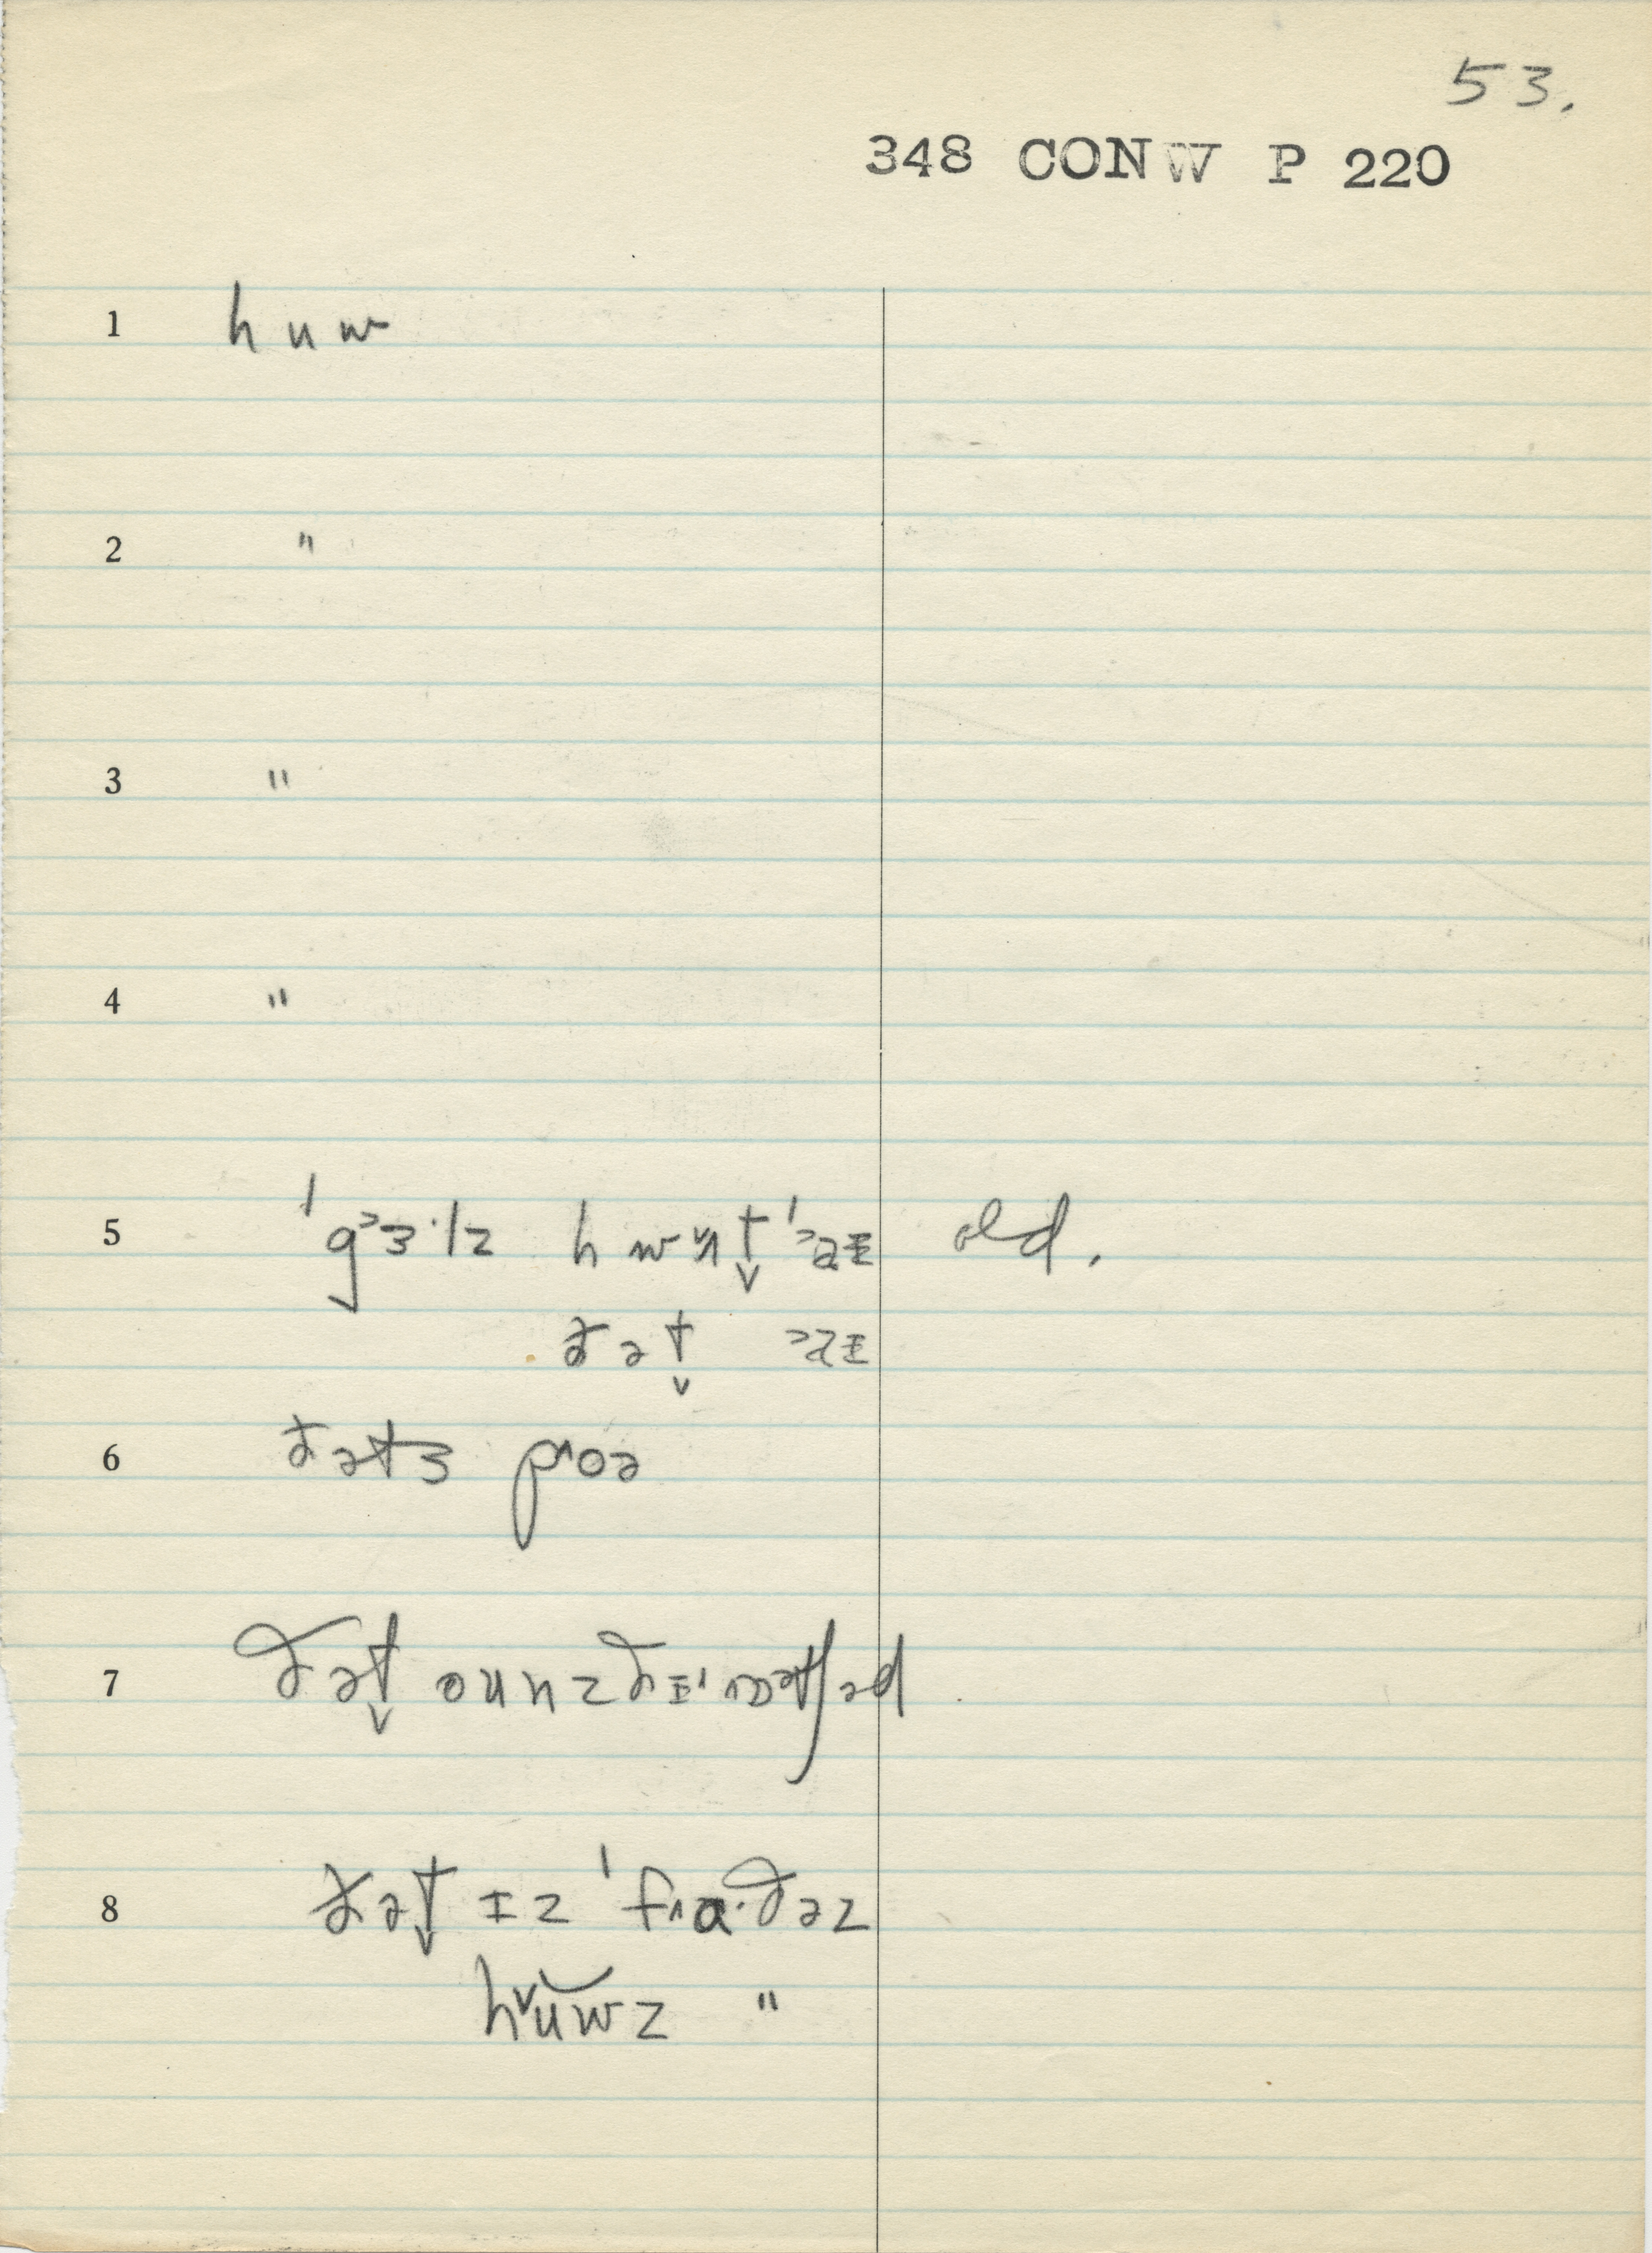 53.
348 CONW P 220
1 huw
2 "
3 "
4 "
5 ˈgᵊɜ·lz hwʌt̬ ˈᵊaɪ old.
ðət̬ ᵊaɪ
6 ðəts poə
7 ðət̬ ounz ðɪ
8 ðət̬ ɪz ˈfɹɑ·ðəz
hᵛuwz "